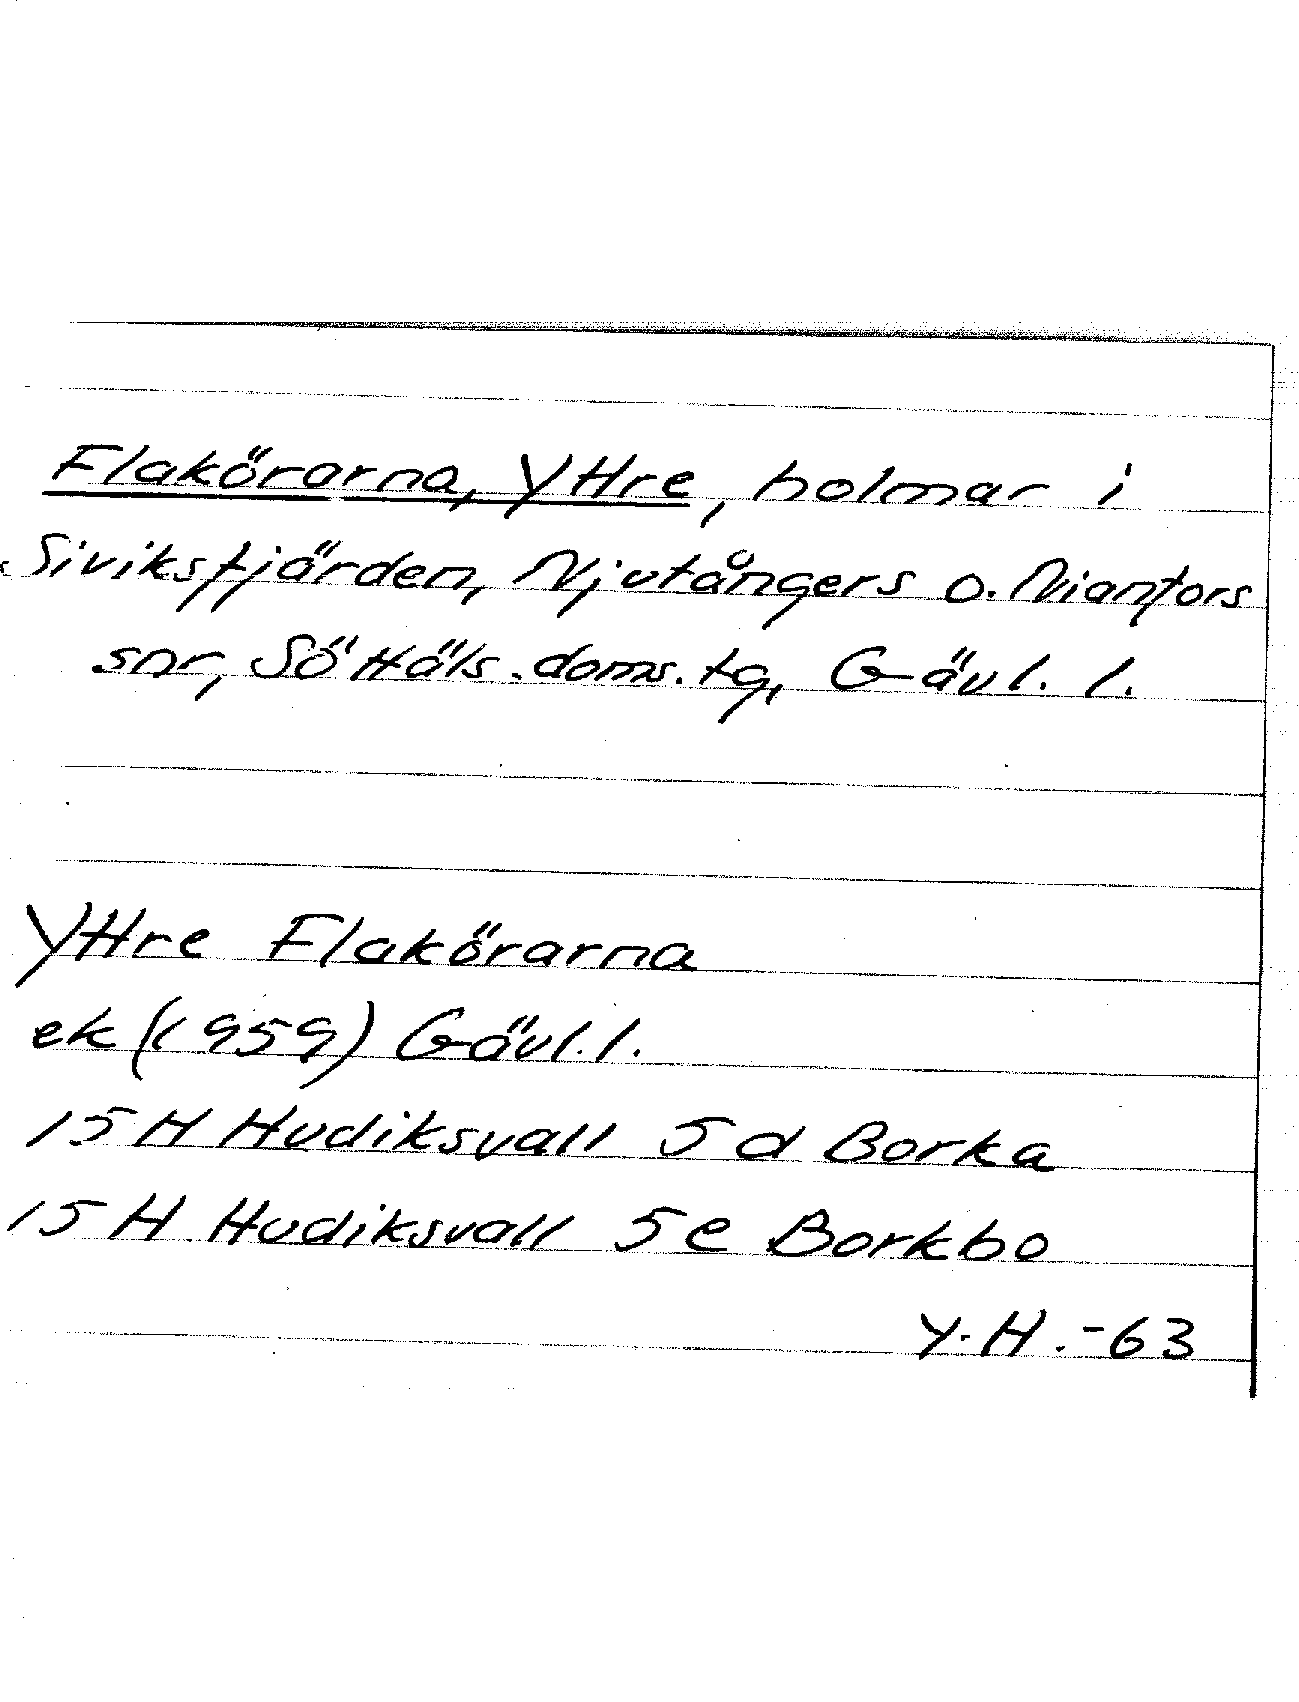 Flakörarna, Yttre, holmar i
Siviksfjärden, Njutångers o. Nianfors
snr, Sö Häls. doms. tg, Gävl. l.
Yttre Flakörarna
ek (1959) Gävl. l.
15 H Hudiksvall 5 d Borka
15 H Hudiksvall 5 e Borkbo
Y. H. -63